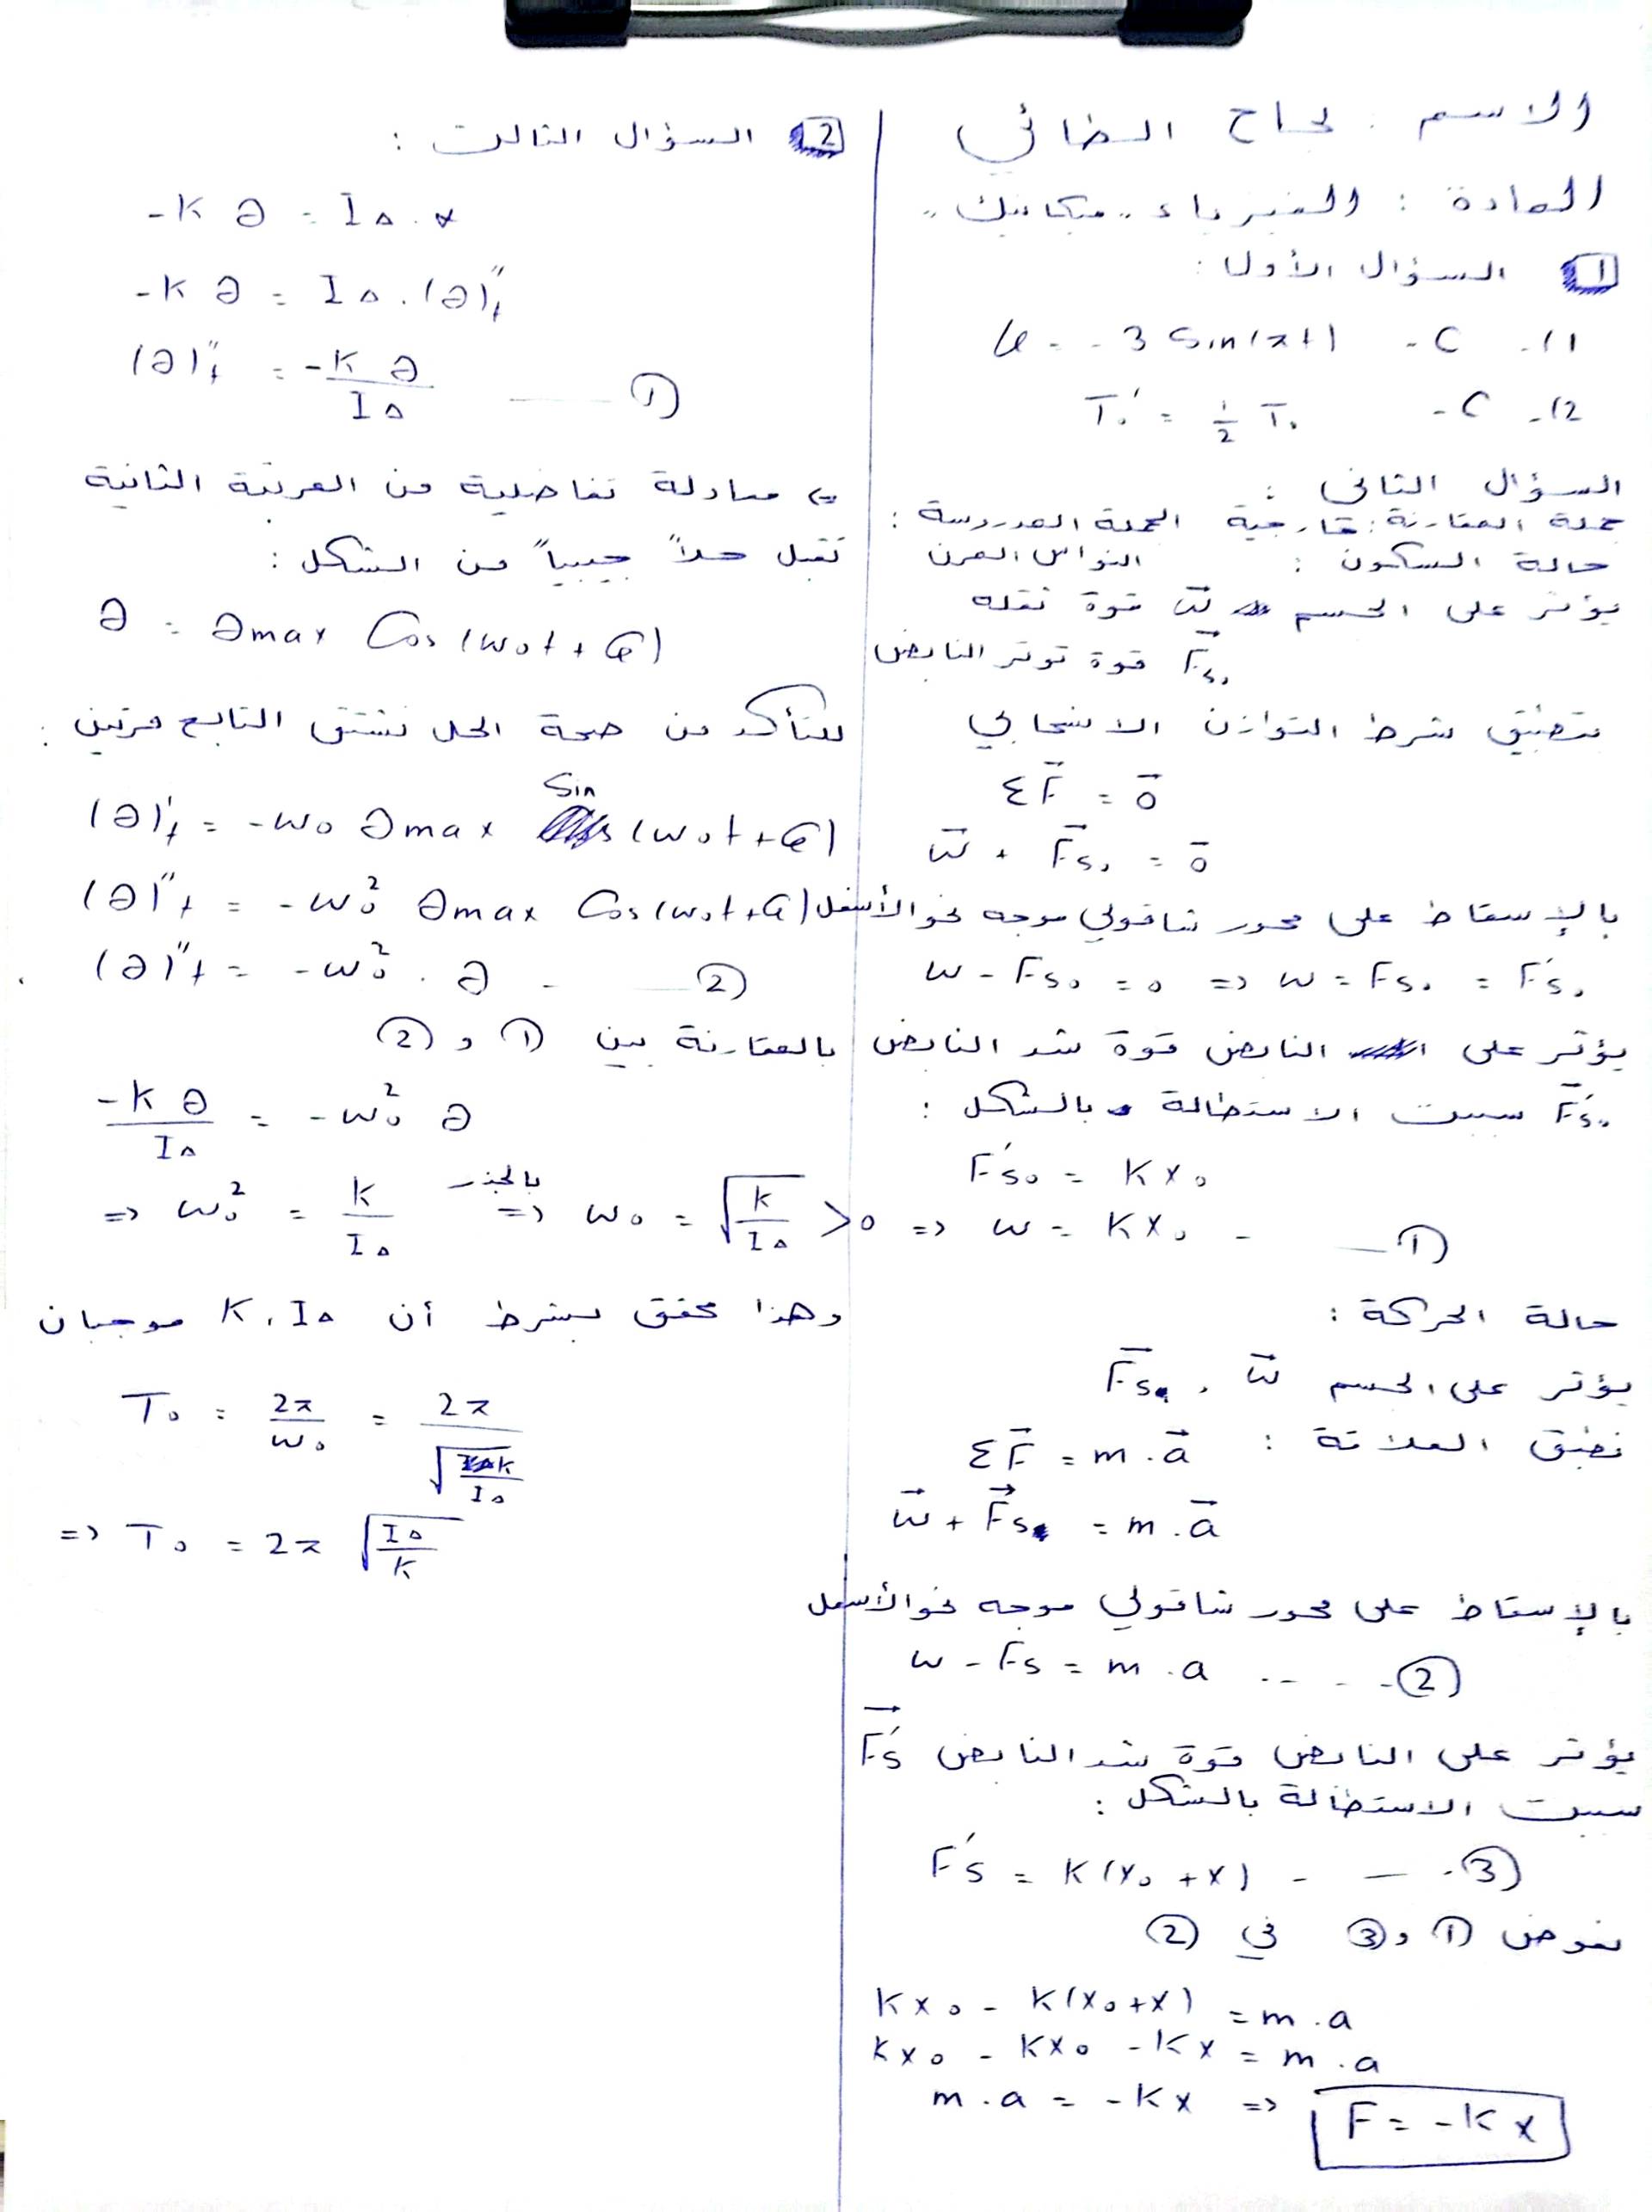 الاسم . نجاح الضائي
المادة : الفيزياء ,, ميكانيك ,,
1 السؤال الأول :
1) - C - v = - 3 Sin(πt)
2) - C - T₀' = 1/2 T₀
السؤال الثاني :
جملة المقارنة : خارجية الجملة المدروسة :
حالة السكون : النواس المرن
يؤثر على الجسم W⃗ قوة ثقله
F⃗s₀ قوة توتر النابض
بتطبيق شرط التوازن الانسحابي
ΣF⃗ = 0⃗
W⃗ + F⃗s₀ = 0⃗
بالإسقاط على محور شاقولي موجه نحو الأسفل
W - Fs₀ = 0 => W = Fs₀ = F's₀
يؤثر على النابض قوة شد النابض
F⃗'s₀ سببت الاستطالة بالشكل :
F's₀ = K x₀
=> W = K x₀ - — ①
حالة الحركة :
يؤثر على الجسم W⃗ , F⃗s
نطبق العلاقة : ΣF⃗ = m . a⃗
W⃗ + F⃗s = m . a⃗
بالإسقاط على محور شاقولي موجه نحو الأسفل
W - Fs = m . a .. - - - ②
يؤثر على النابض قوة شد النابض F⃗'s
سببت الاستطالة بالشكل :
F's = K (x₀ + x) - — - ③
نعوض ① و ③ في ②
K x₀ - K(x₀ + x) = m . a
K x₀ - K x₀ - K x = m . a
m . a = - K x => F = - K x
2 السؤال الثالث :
- K θ = I∆ . α
- K θ = I∆ . (θ)''t
(θ)''t = - K θ / I∆ —— ①
=> معادلة تفاضلية من المرتبة الثانية
تقبل حلاً جيبياً من الشكل :
θ = θmax Cos (ω₀t + φ)
للتأكد من صحة الحل نشتق التابع مرتين :
(θ)'t = - ω₀ θmax Sin (ω₀t + φ)
(θ)''t = - ω₀² θmax Cos (ω₀t + φ)
(θ)''t = - ω₀² . θ - —— ②
بالمقارنة بين ① و ②
- K θ / I∆ = - ω₀² θ
=> ω₀² = K / I∆ بالجذر => ω₀ = √(K / I∆) > 0
وهذا محقق بشرط أن K , I∆ موجبان
T₀ = 2π / ω₀ = 2π / √(K / I∆)
=> T₀ = 2π √(I∆ / K)